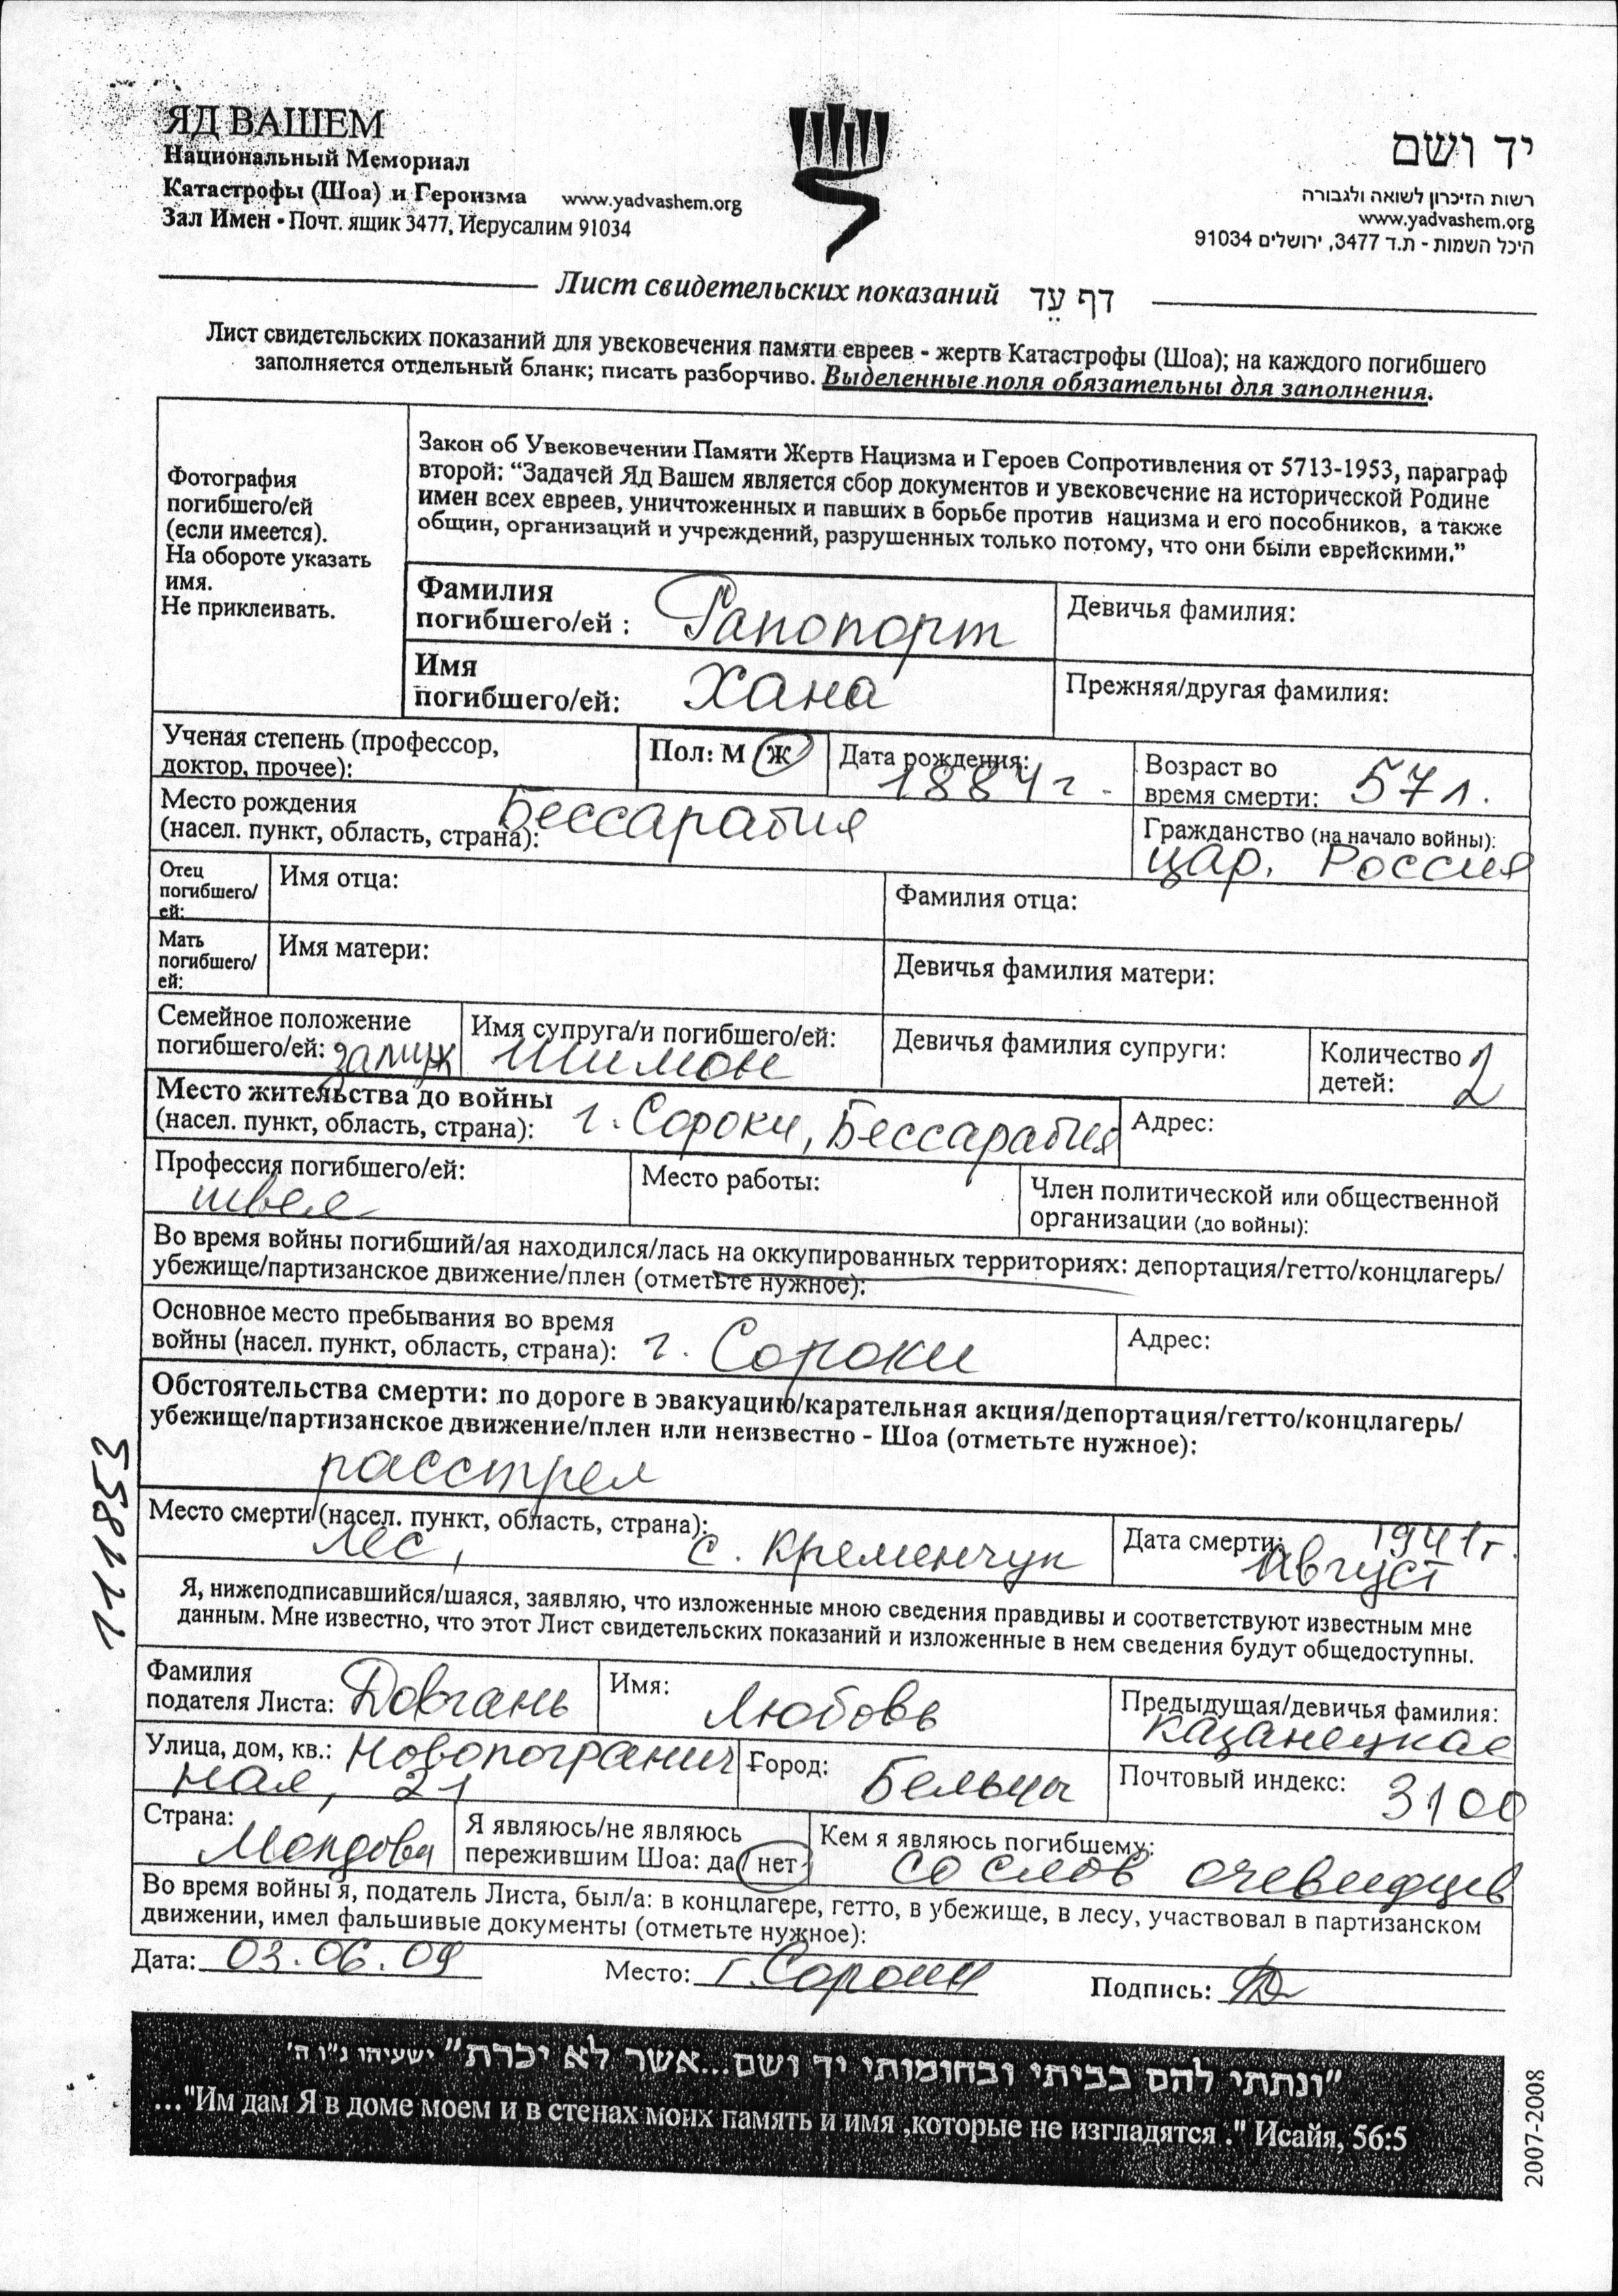 ЯД ВАШЕМ
Национальный Мемориал
Катастрофы (Шоа) и Героизма www.yadvashem.org
Зал Имен • Почт. ящик 3477, Иерусалим 91034
יד ושם
רשות הזיכרון לשואה ולגבורה
www.yadvashem.org
היכל השמות - ת.ד 3477, ירושלים 91034
Лист свидетельских показаний דף עֵד
Лист свидетельских показаний для увековечения памяти евреев - жертв Катастрофы (Шоа); на каждого погибшего
заполняется отдельный бланк; писать разборчиво. Выделенные поля обязательны для заполнения.
Фотография
погибшего/ей
(если имеется).
На обороте указать
имя.
Не приклеивать.
Закон об Увековечении Памяти Жертв Нацизма и Героев Сопротивления от 5713-1953, параграф
второй: “Задачей Яд Вашем является сбор документов и увековечение на исторической Родине
имен всех евреев, уничтоженных и павших в борьбе против нацизма и его пособников, а также
общин, организаций и учреждений, разрушенных только потому, что они были еврейскими.”
Фамилия
погибшего/ей : Рапопорт
Девичья фамилия:
Имя
погибшего/ей: Хана
Прежняя/другая фамилия:
Ученая степень (профессор,
доктор, прочее):
Пол: М Ж
Дата рождения:
1884 г.
Возраст во
время смерти: 57 л.
Место рождения
(насел. пункт, область, страна): Бессарабия
Гражданство (на начало войны):
цар. Россия
Отец
погибшего/
ей:
Имя отца:
Фамилия отца:
Мать
погибшего/
ей:
Имя матери:
Девичья фамилия матери:
Семейное положение
погибшего/ей: замуж
Имя супруга/и погибшего/ей:
Шимон
Девичья фамилия супруги:
Количество
детей: 2
Место жительства до войны
(насел. пункт, область, страна): г. Сороки, Бессарабия
Адрес:
Профессия погибшего/ей:
швея
Место работы:
Член политической или общественной
организации (до войны):
Во время войны погибший/ая находился/лась на оккупированных территориях: депортация/гетто/концлагерь/
убежище/партизанское движение/плен (отметьте нужное):
Основное место пребывания во время
войны (насел. пункт, область, страна): г. Сороки
Адрес:
Обстоятельства смерти: по дороге в эвакуацию/карательная акция/депортация/гетто/концлагерь/
убежище/партизанское движение/плен или неизвестно - Шоа (отметьте нужное):
расстрел
Место смерти (насел. пункт, область, страна):
лес, с. Кременчук
Дата смерти: 1941 г.
Август
Я, нижеподписавшийся/шаяся, заявляю, что изложенные мною сведения правдивы и соответствуют известным мне
данным. Мне известно, что этот Лист свидетельских показаний и изложенные в нем сведения будут общедоступны.
Фамилия
подателя Листа: Довгань
Имя:
Любовь
Предыдущая/девичья фамилия:
Казанецкая
Улица, дом, кв.: Новопогранич
ная, 21
Город:
Бельцы
Почтовый индекс: 3100
Страна:
Молдова
Я являюсь/не являюсь
пережившим Шоа: да/нет
Кем я являюсь погибшему:
со слов очевидцев
Во время войны я, податель Листа, был/а: в концлагере, гетто, в убежище, в лесу, участвовал в партизанском
движении, имел фальшивые документы (отметьте нужное):
Дата: 03.06.09 Место: г. Сороки Подпись:
"ונתתי להם בביתי ובחומותי יד ושם...אשר לא יכרת" ישעיהו נ"ו ה'
..."Им дам Я в доме моем и в стенах моих память и имя ,которые не изгладятся ." Исайя, 56:5
111853
2007-2008